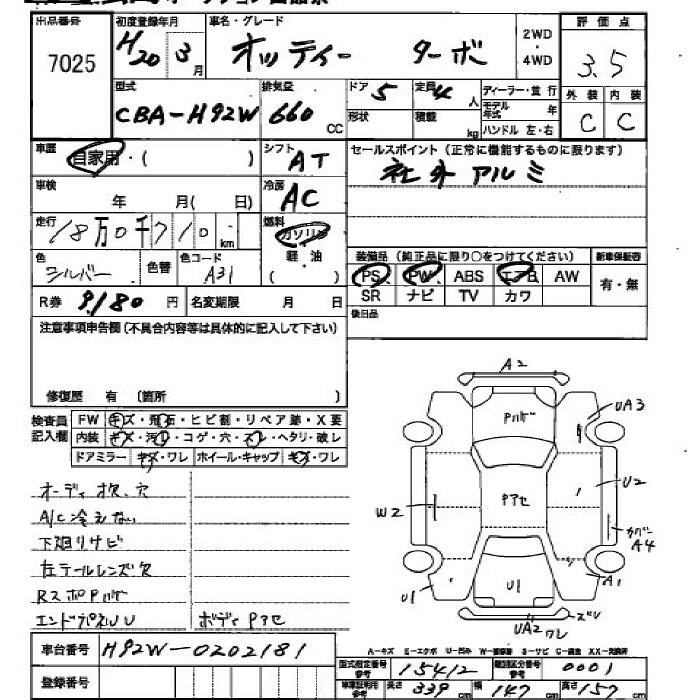 出品番号 初度登録年月 車名・グレード 2WD・4WD 評価点
7025 H20 3月 オッティー ターボ 3.5
型式 排気量 ドア 5 定員 4人 ディーラー・並行 外装 内装
CBA-H92W 660cc 形状 積載 kg モデル年式 年 C C
ハンドル 左・右
車歴 自家用・( ) シフト AT セールスポイント (正常に機能するものに限ります)
社外アルミ
車検 年 月( 日) 冷房 AC
走行 18万0千710km 燃料 ガソリン
軽油
( )
色 シルバー 色替 色コード A31
装備品 (純正品に限り○をつけてください) 新車保証書
PS PW ABS エアB AW 有・無
SR ナビ TV カワ
R券 9180円 名変期限 月 日 後日品
注意事項申告欄(不具合内容等は具体的に記入して下さい)
修復歴 有 (箇所 )
検査員記入欄 FW キズ・飛石・ヒビ割・リペア跡・X要
内装 キズ・汚レ・コゲ・穴・スレ・ヘタリ・破レ
ドアミラー キズ・ワレ ホイール・キャップ キズ・ワレ
オーディオ欠、穴
A/C冷えない
下廻りサビ
左テールレンズ欠
RスポPハゲ
ボディPアセ
A2
Pハゲ
UA3
U2
W2
Pアセ
カバーA4
A1
U1
U1
ズレ
UA2 ワレ
A-キズ E-エクボ U-凹み W-補修跡 S-サビ C-腐食 XX-交換済
車台番号 H92W-0202181
登録番号
型式指定番号 参考 15412 類別区分番号 参考 0001
車庫証明用 参考 長さ 339cm 幅 147cm 高さ 157cm